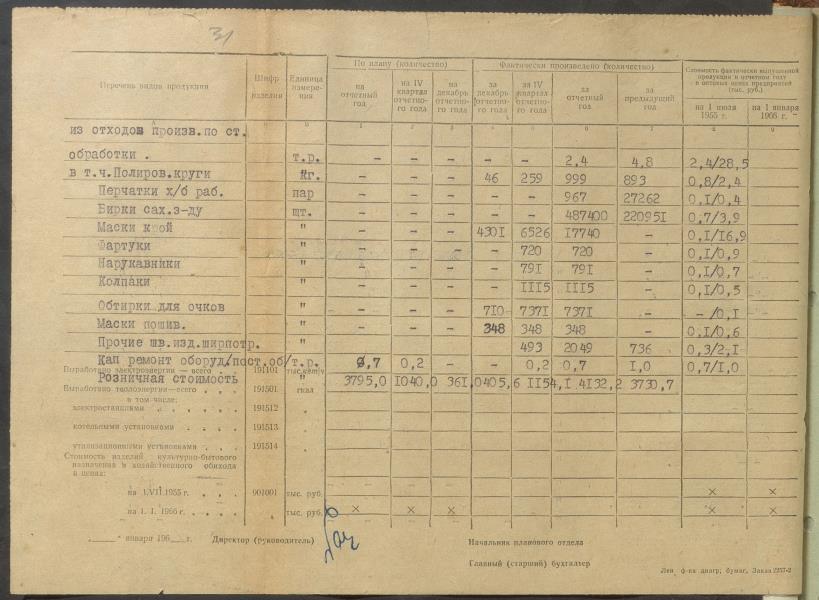 31
Перечень видов продукции Шифр изделия Единица измерения По плану (количество) Фактически произведено (количество) Стоимость фактически выпущенной продукции в отчетном году в оптовых ценах предприятий (тыс. руб.)
на отчетный год на IV квартал отчетного года на декабрь отчетного года за декабрь отчетного года за IV квартал отчетного года за отчетный год за предыдущий год на 1 июля 1955 г. на 1 января 1966 г.
из отходов произв.по ст.
обработки . т.р. – – – – – 2,4 4,8 2,4/28,5
в т.ч.Полиров.круги кг. – – – 46 259 999 893 0,8/2,4
Перчатки х/б раб. пар – – – – – 967 27262 0,1/0,4
Бирки сах.з-ду шт. – – – – – 487400 220951 0,7/3,9
Маски крой " – – – 4301 6526 17740 – 0,1/16,9
Фартуки " – – – – 720 720 – 0,1/0,9
Нарукавники " – – – – 791 791 – 0,1/0,7
Колпаки " – – – – 1115 1115 – 0,1/0,5
Обтирки для очков " – – – 710 7371 7371 – –/0,1
Маски пошив. " – – – 348 348 348 – 0,1/0,6
Прочие шв.изд.ширпотр. " – – – – 493 2049 736 0,3/2,1
Кап ремонт оборуд/пост.об/т.р. 0,7 0,2 – – 0,2 0,7 1,0 0,7/1,0
Выработано электроэнергии — всего 191101 тыс.квт/ч
Розничная стоимость " 3795,0 1040,0 361,0 405,6 1154,1 4132,2 3730,7
Выработано теплоэнергии—всего . . . 191501 гкал
в том числе:
электростанциями . . . 191512 "
котельными установками . . . 191513 "
утилизационными установками . . . 191514 "
Стоимость изделий культурно-бытового
назначения и хозяйственного обихода
в ценах:
на 1.VII.1955 г. . . . 901001 тыс. руб. × ×
на 1. I. 1966 г. . . . . тыс. руб. × × × × ×
„___“ января 196___г. Директор (руководитель) Начальник планового отдела
Главный (старший) бухгалтер
Лен. ф-ка диагр. бумаг. Заказ 2257-2